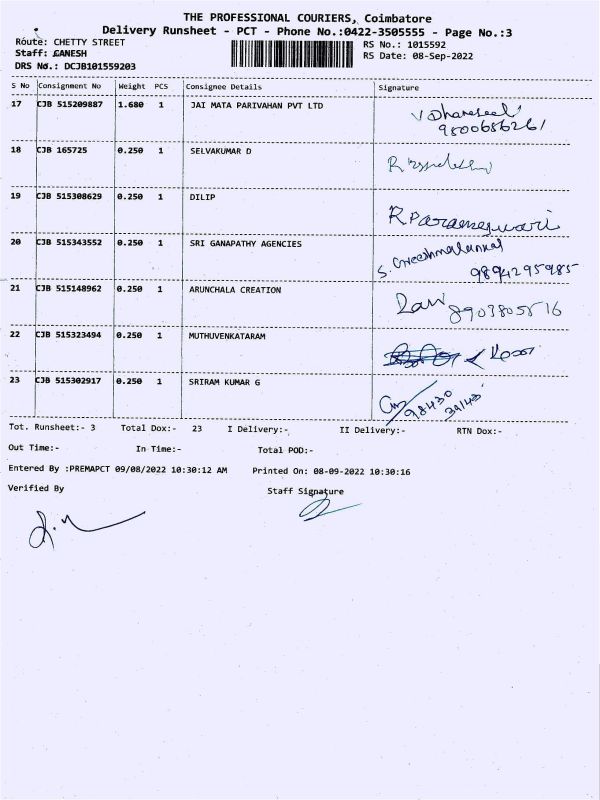 THE PROFESSIONAL COURIERS, Coimbatore
Delivery Runsheet - PCT - Phone No.:0422-3505555 - Page No.:3
Route: CHETTY STREET
RS No.: 1015592
Staff: GANESH
RS Date: 08-Sep-2022
DRS No.: DCJB101559203
S No Consignment No Weight PCS Consignee Details Signature
17 CJB 515209887 1.680 1 JAI MATA PARIVAHAN PVT LTD
9500686261
18 CJB 165725 0.250 1 SELVAKUMAR D
19 CJB 515308629 0.250 1 DILIP
R Parameswari
20 CJB 515343552 0.250 1 SRI GANAPATHY AGENCIES
9894295985
21 CJB 515148962 0.250 1 ARUNCHALA CREATION
Ravi 8903805516
22 CJB 515323494 0.250 1 MUTHUVENKATARAM
23 CJB 515302917 0.250 1 SRIRAM KUMAR G
98430
39143
Tot. Runsheet:- 3 Total Dox:- 23 I Delivery:- II Delivery:- RTN Dox:-
Out Time:- In Time:- Total POD:-
Entered By :PREMAPCT 09/08/2022 10:30:12 AM Printed On: 08-09-2022 10:30:16
Verified By Staff Signature